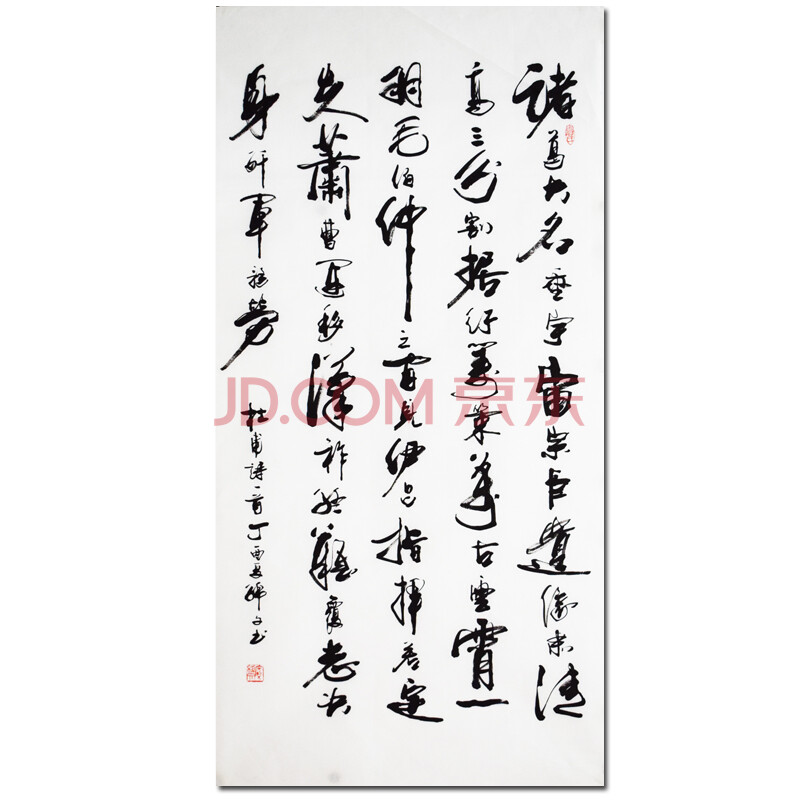 諸葛大名垂宇宙宗臣遺像肅清
高三分割據紆籌策萬古雲霄一
羽毛伯仲之間見伊呂指揮若定
失蕭曹運移漢祚終難復志決
身殲軍務勞
杜甫詩一首丁酉夏
JD.COM 京东